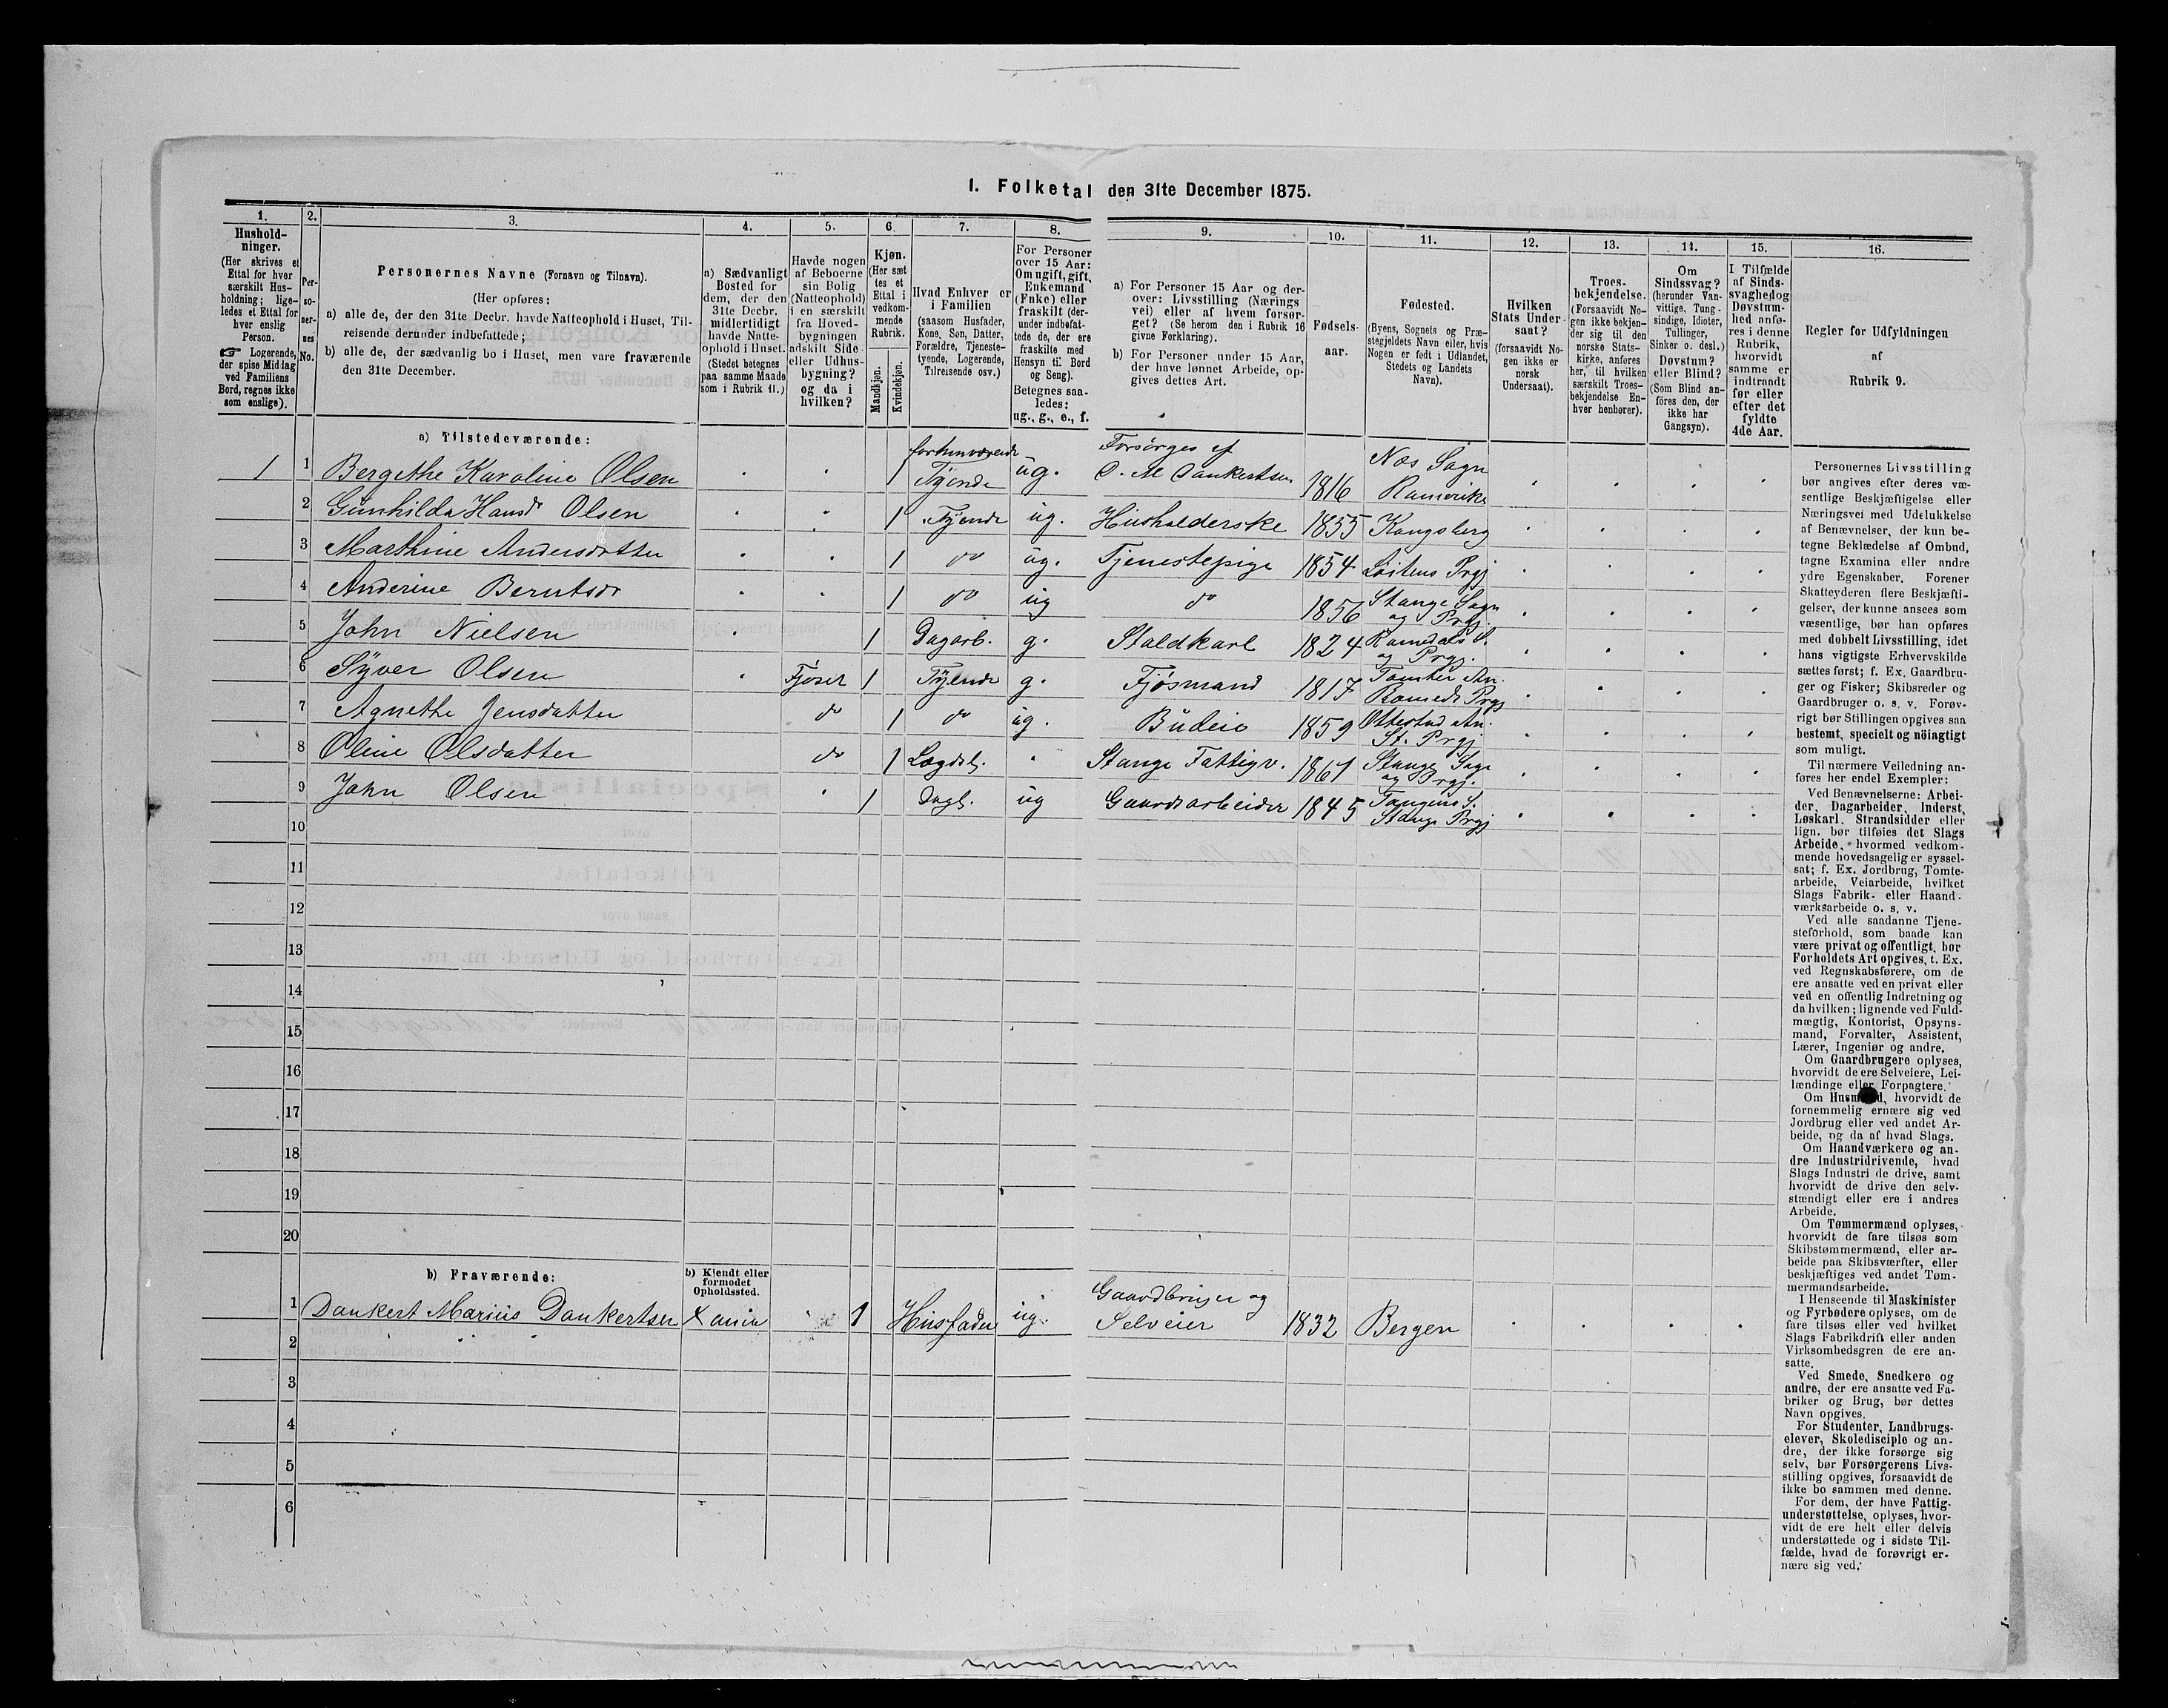 1. Folketal den 31te December 1875.
1.
Hushold-
ninger.
(Her skrives et
Ettal for hver
særskilt Hus-
holdning; lige-
ledes et Ettal for
hver enslig
Person.
☞ Logerende,
der spise Middag
ved Familiens
Bord, regnes ikke
som enslige).
2.
Per-
so-
ner-
nes
No.
3.
Personernes Navne (Fornavn og Tilnavn).
(Her opføres:
a) alle de, der den 31te Decbr. havde Natteophold i Huset, Til-
reisende derunder indbefattede;
b) alle de, der sædvanlig bo i Huset, men vare fraværende
den 31te December.
4.
a) Sædvanligt
Bosted for
dem, der den
31te Decbr.
midlertidigt
havde Natte-
ophold i Huset.
(Stedet betegnes
paa samme Maade
som i Rubrik 11.)
5.
Havde nogen
af Beboerne
sin Bolig
(Natteophold)
i en særskilt
fra Hoved-
bygningen
adskilt Side-
eller Udhus-
bygning?
og da i
hvilken?
6.
Kjøn.
(Her sæt
tes et
Ettal i
vedkom-
mende
Rubrik.
Mandkjøn.
Kvindekjøn.
7.
Hvad Enhver er
i Familien
(saasom Husfader,
Kone, Søn, Datter,
Forældre, Tjeneste-
tyende, Logerende,
Tilreisende osv.)
8.
For Personer
over 15 Aar:
Om ugift, gift,
Enkemand
(Enke) eller
fraskilt (der-
under indbefat-
tede de, der ere
fraskilte med
Hensyn til Bord
og Seng).
Betegnes saa-
ledes:
ug., g., e., f.
9.
a) For Personer 15 Aar og der-
over: Livsstilling (Nærings
vei) eller af hvem forsør-
get? (Se herom den i Rubrik 16
givne Forklaring).
b) For Personer under 15 Aar,
der have lønnet Arbeide, op-
gives dettes Art.
10.
Fødsels-
aar.
11.
Fødested.
(Byens, Sognets og Præ-
stegjeldets Navn eller, hvis
Nogen er født i Udlandet,
Stedets og Landets
Navn).
12.
Hvilken
Stats Under
saat?
(forsaavidt No-
gen ikke er
norsk
Undersaat).
13.
Troes-
bekjendelse.
(Forsaavidt No-
gen ikke bekjen-
der sig til den
norske Stats-
kirke, anføres
her, til hvilken
særskilt Troes-
bekjendelse En-
hver henhører).
14.
Om
Sindssvag?
(herunder Van-
vittige, Tung-
sindige, Idioter,
Tullinger,
Sinker o. desl.)
Døvstum?
eller Blind?
(Som Blind an-
føres den, der
ikke har
Gangsyn).
15.
I Tilfælde
af Sinds-
svaghed og
Døvstum-
hed anfø-
res i denne
Rubrik,
hvorvidt
samme er
indtraadt
før eller
efter det
fyldte
4de Aar.
16.
Regler for Udfyldningen
af
Rubrik 9.
a) Tilstedeværende:
1 1 Bergethe Karoline Olsen 1 forhenværende Tyende ug. Forsørges af D. M Dankertsen 1816 Næs Sogn Romerike
2 Gunhilda Hansdr Olsen 1 Tyende ug. Husholderske 1855 Kongsberg
3 Marthine Andersdatter 1 do ug. Tjenestepige 1854 Løitens Prgj
4 Anderine Berntsdr 1 do ug do 1856 Stange Sogn og Prgj.
5 John Nielsen 1 Dagarb. g. Staldkarl 1824 Romedals S. og Prgj.
6 Syver Olsen Fjøset 1 Tyende g. Fjøsmand 1817 Tomter An. Romedr Prgj
7 Agnethe Jensdatter do 1 do ug. Budeie 1859 Ottestad An. St. Prgj
8 Oline Olsdatter do 1 Lægdsl. Stange Fattigv. 1861 Stange Sogn og Prgj.
9 John Olsen 1 Dagl. ug Gaardsarbeider 1845 Tangens S. Stange Prgj
10
11
12
13
14
15
16
17
18
19
20
b) Fraværende:
b) Kjendt eller
formodet
Opholdssted.
1 Dankert Marius Dankertsen Xania 1 Husfader ug. Gaardbruger og Selveier 1832 Bergen
2
3
4
5
6
Personernes Livsstilling
bør angives efter deres væ-
sentlige Beskjæftigelse eller
Næringsvei med Udelukkelse
af Benævnelser, der kun be-
tegne Beklædelse af Ombud,
tagne Examina eller andre
ydre Egenskaber. Forener
Skatteyderen flere Beskjæfti-
gelser, der kunne ansees som
væsentlige, bør han opføres
med dobbelt Livsstilling, idet
hans vigtigste Erhvervskilde
sættes først; f. Ex. Gaardbru-
ger og Fisker; Skibsreder og
Gaardbruger o. s. v. Forøv-
rigt bør Stillingen opgives saa
bestemt, specielt og nöiagtigt
som muligt.
Til nærmere Veiledning an-
føres her endel Exempler:
Ved Benævnelserne: Arbei-
der, Dagarbeider, Inderst,
Løskarl, Strandsidder eller
lign. bør tilføies det Slags
Arbeide, hvormed vedkom-
mende hovedsagelig er syssel-
sat; f. Ex. Jordbrug, Tomte-
arbeide, Veiarbeide, hvilket
Slags Fabrik- eller Haand-
værksarbeide o. s. v.
Ved alle saadanne Tjene-
steforhold, som baade kan
være privat og offentligt, bør
Forholdets Art opgives, t. Ex.
ved Regnskabsførere, om de
ere ansatte ved en privat eller
ved en offentlig Indretning og
da hvilken; lignende ved Fuld-
mægtig, Kontorist, Opsyns-
mand, Forvalter, Assistent,
Lærer, Ingeniør og andre.
Om Gaardbrugere oplyses,
hvorvidt de ere Selveiere, Lei-
lændinge eller Forpagtere.
Om Husmænd, hvorvidt de
fornemmelig ernære sig ved
Jordbrug eller ved andet Ar-
beide, og da af hvad Slags.
Om Haandværkere og an-
dre Industridrivende, hvad
Slags Industri de drive, samt
hvorvidt de drive den selv-
stændigt eller ere i andres
Arbeide.
Om Tømmermænd oplyses,
hvorvidt de fare tilsøs som
Skibstømmermænd, eller ar-
beide paa Skibsværfter, eller
beskjæftiges ved andet Tøm-
mermandsarbeide.
I Henseende til Maskinister
og Fyrbødere oplyses, om de
fare tilsøs eller ved hvilket
Slags Fabrikdrift eller anden
Virksomhedsgren de ere an-
satte.
Ved Smede, Snedkere og
andre, der ere ansatte ved Fa-
briker og Brug, bør dettes
Navn opgives.
For Studenter, Landbrugs-
elever, Skoledisciple og an-
dre, der ikke forsørge sig
selv, bør Forsørgerens Livs-
stilling opgives, forsaavidt de
ikke bo sammen med denne.
For dem, der have Fattig-
understøttelse, oplyses, hvor-
vidt de ere helt eller delvis
understøttede og i sidste Til-
fælde, hvad de forøvrigt er-
nære sig ved.